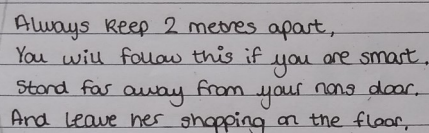 Always keep 2 metres apart,
You will follow this if you are smart.
Stand far away from your nans door.
And leave her shopping on the floor.